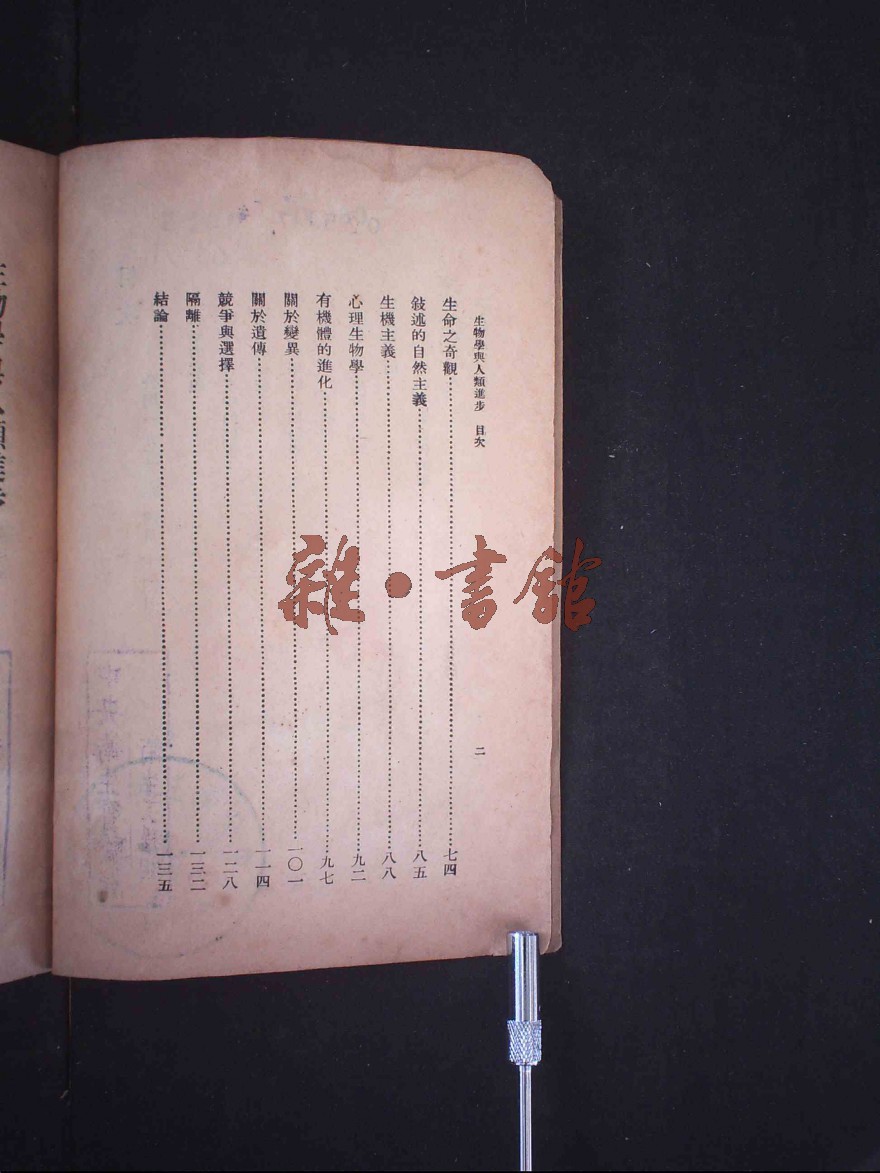 生物學與人類進步　目次
二
生命之奇觀……七四
敍述的自然主義……八五
生機主義……八八
心理生物學……九二
有機體的進化……九七
關於變異……一〇一
關於遺傳……一一四
競爭與選擇……一二八
隔離……一三二
結論……一三五
雜·書館